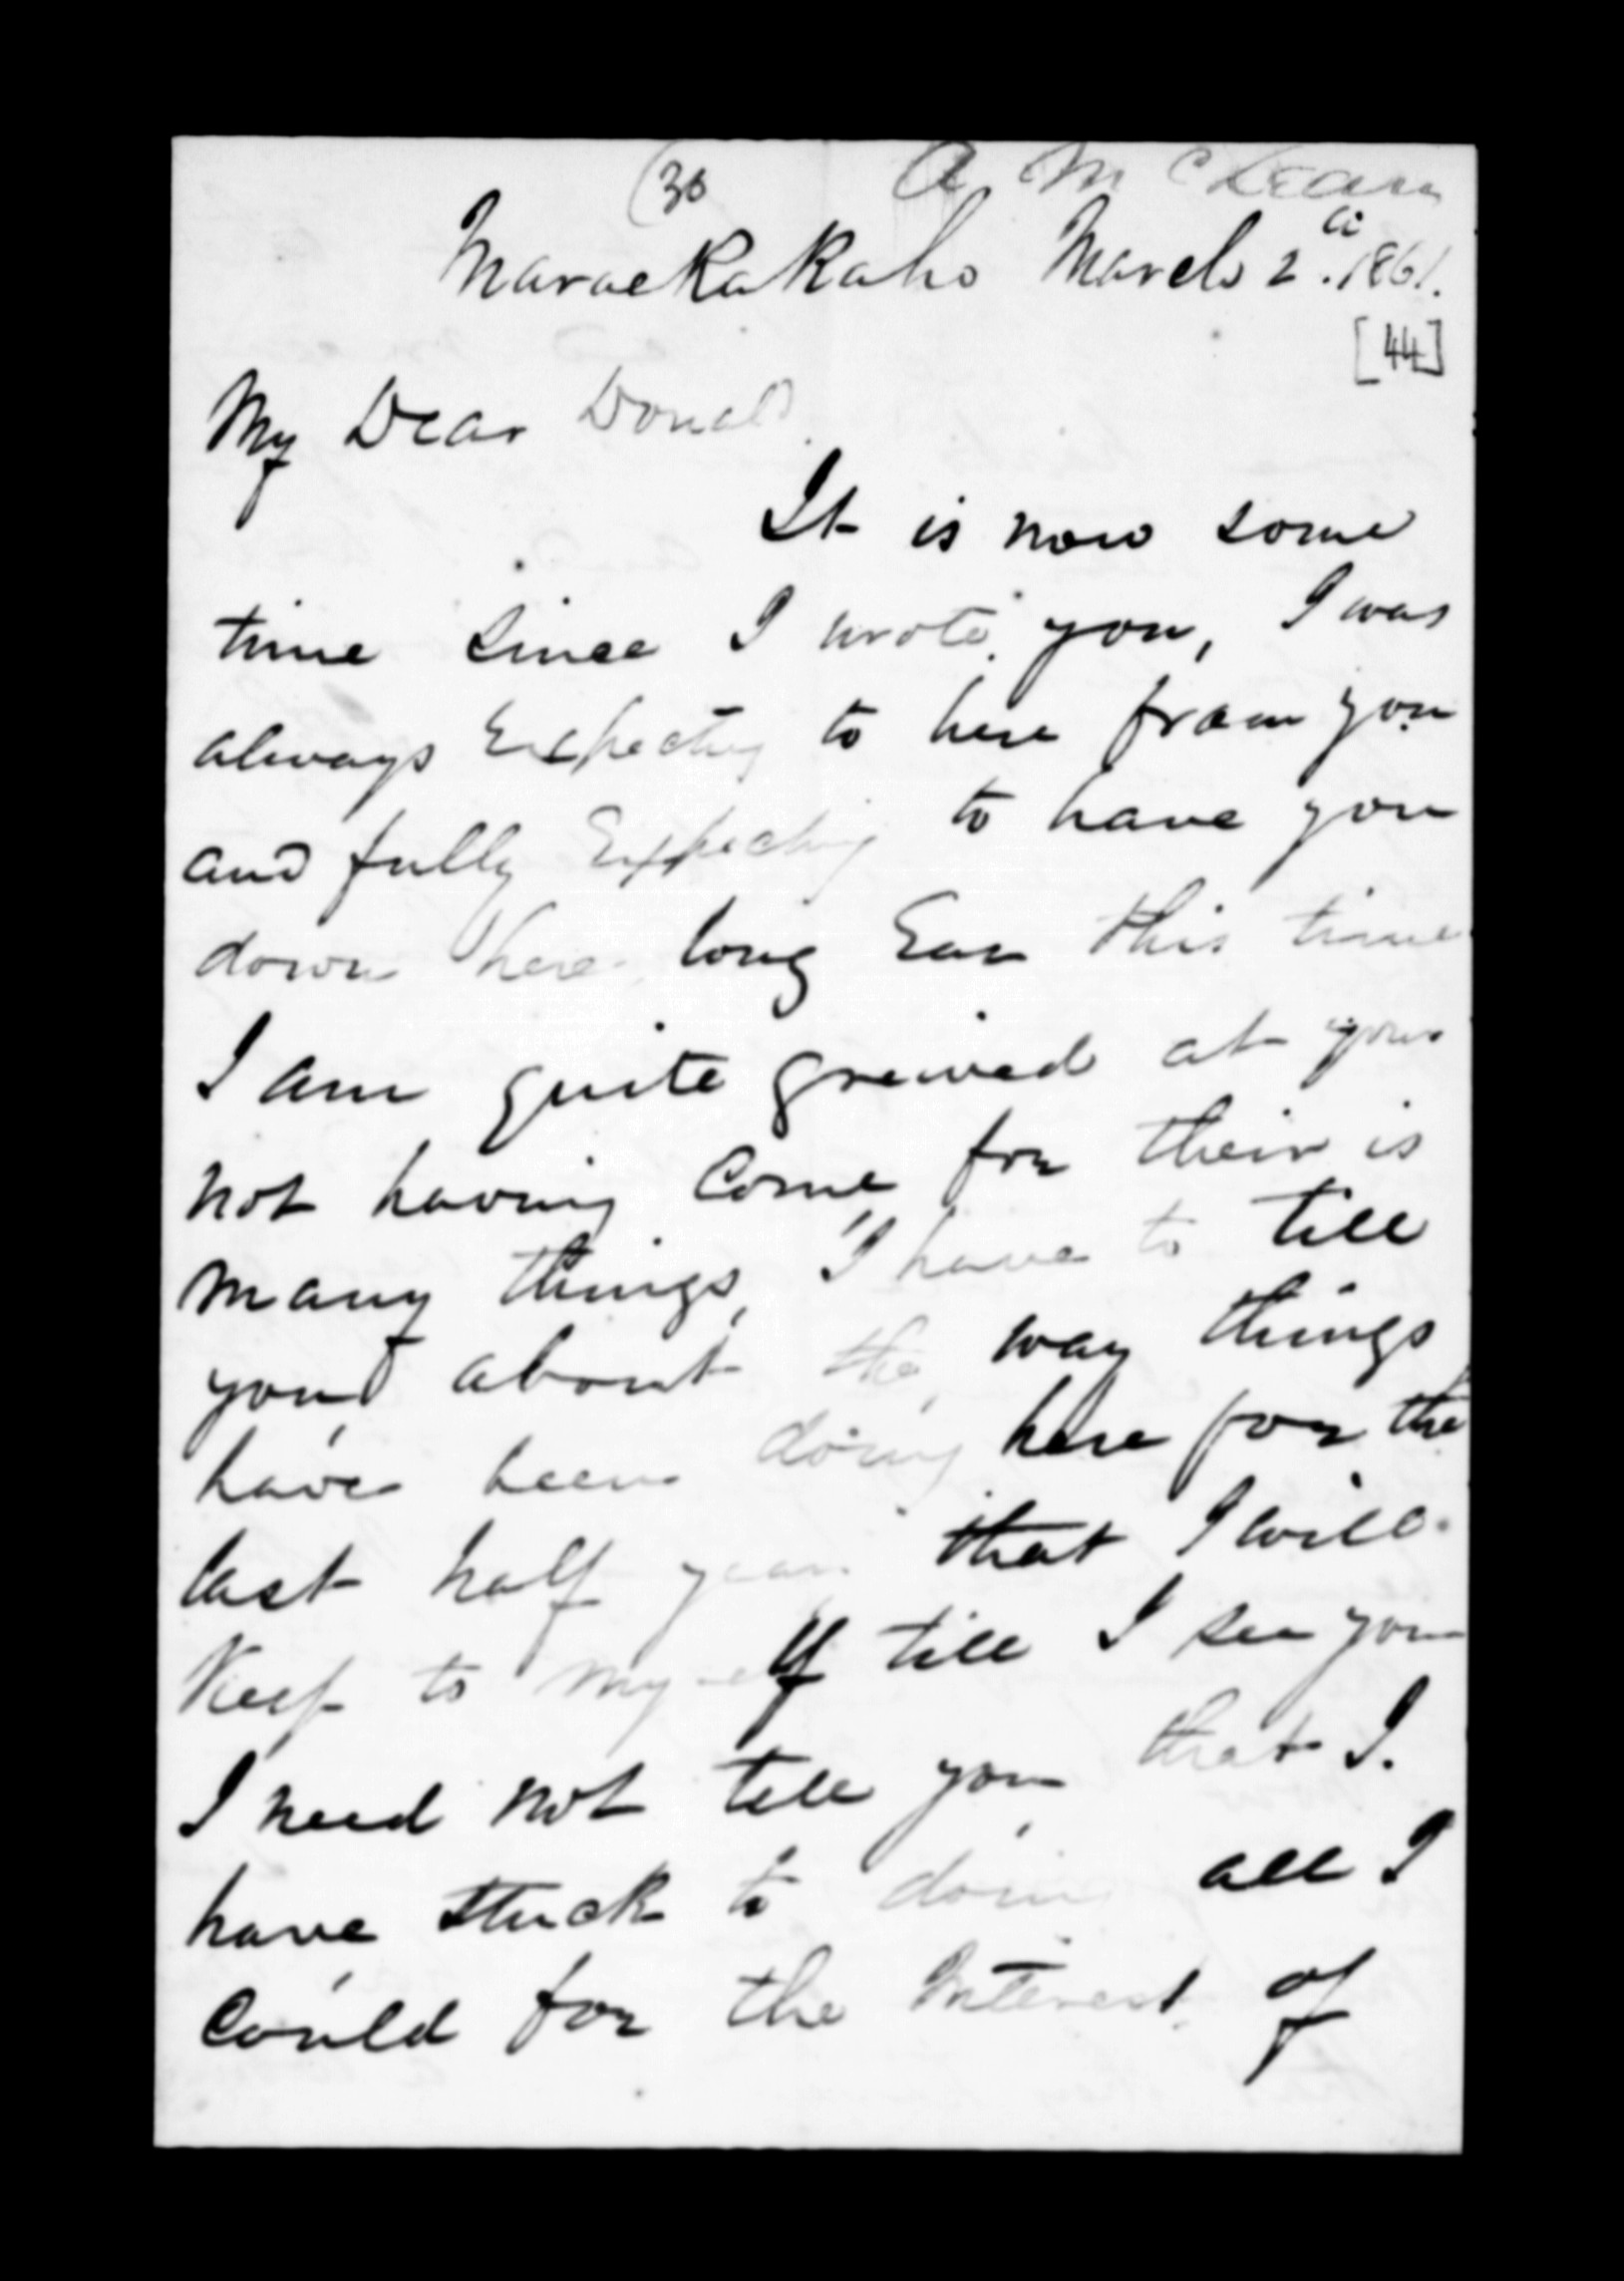 (30 A McLean
Maraekakaho March 2d. 1861.
[44]
My Dear Donald
It is now some
time since I wrote you, I was
always Expecting to here from you
and fully Expecting to have you
down here long Ear this time
I am quite greived at your
not having Come for their is
many things, I have to till
you about the way things
have been doing here for the
last half year that I will
Keep to myself till I see you
I need not tell you that I.
have stuck to doing all I
Could for the Interest of